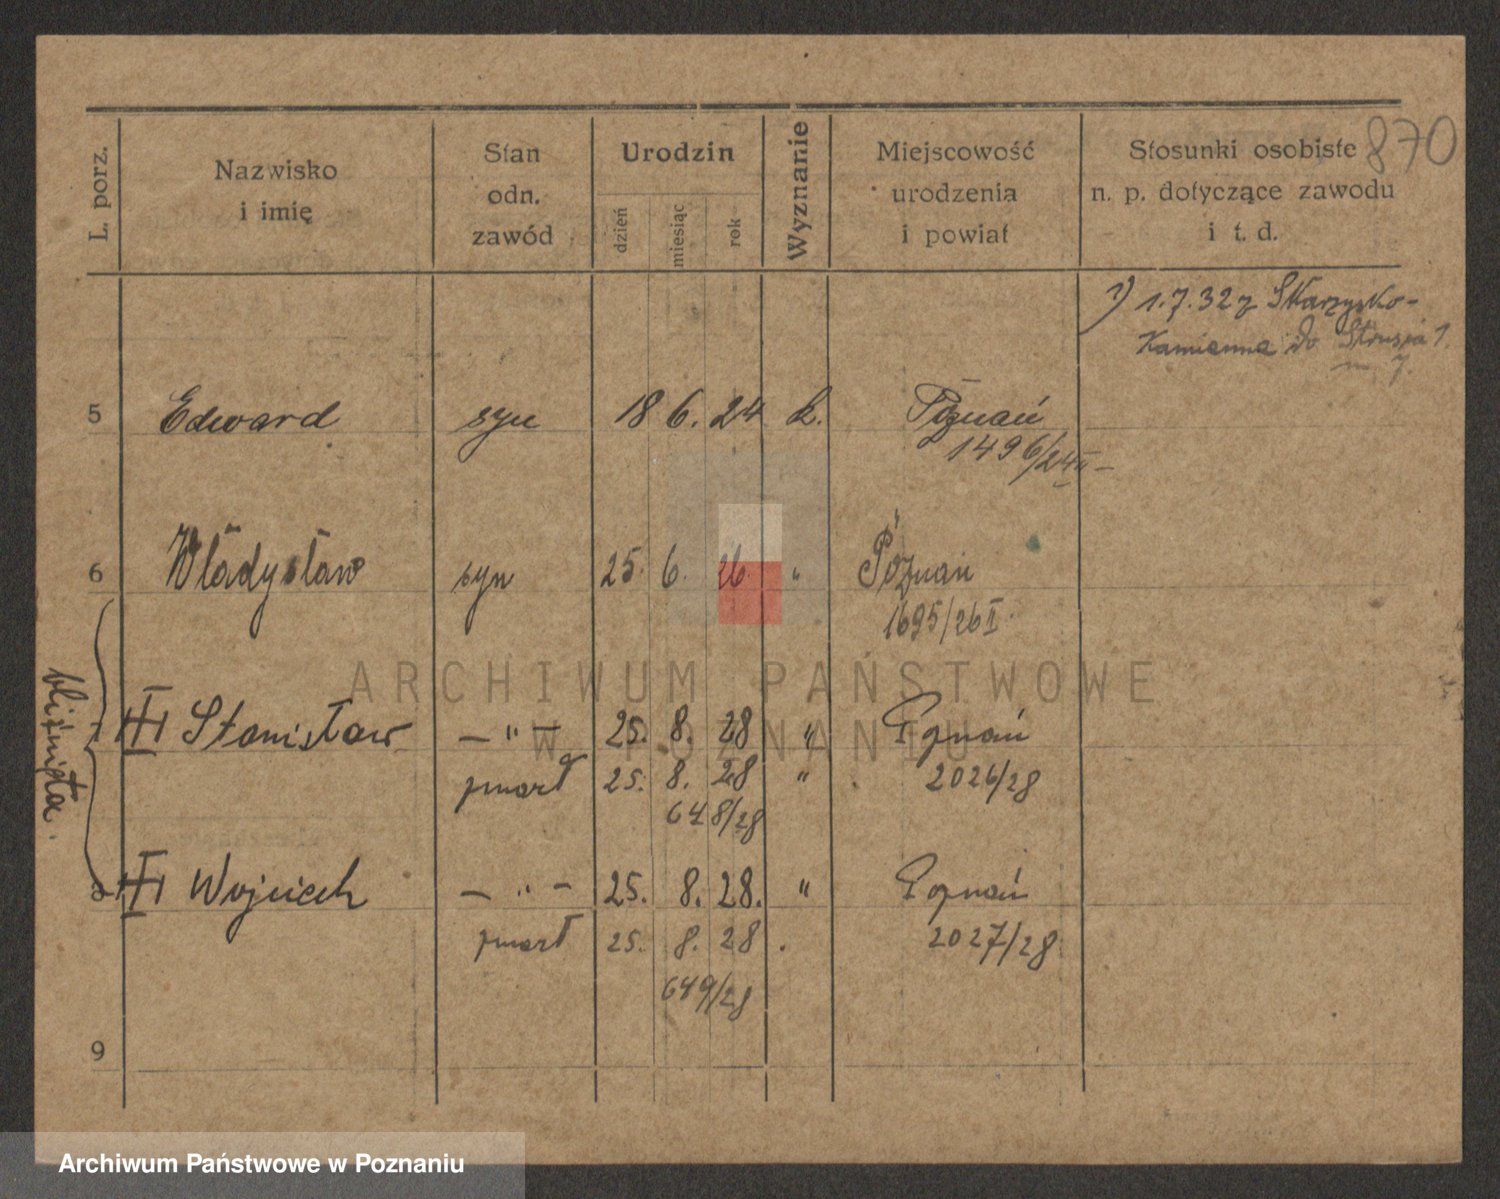 870
L. porz.
Nazwisko
i imię
Stan
odn.
zawód
Urodzin
dzień
miesiąc
rok
Wyznanie
Miejscowość
urodzenia
i powiat
Stosunki osobiste
n. p. dotyczące zawodu
i t. d.
1) 1.7.32 z Skarżysko-
Kamienna do Strusia 7.
m 7.
5 Edward syn 18 6. 24 k. Poznań
1496/24 II
6 Władysław syn 25. 6. 26. " Poznań
1695/26 II
bliźnięta.
7 Stanisław — " — 25. 8. 28 " Poznań
zmarł 25. 8. 28 " 2026/28
648/28
8 Wojciech — " — 25. 8. 28. " Poznań
zmarł 25. 8. 28 2027/28
649/28
9
ARCHIWUM PAŃSTWOWE
W POZNANIU
Archiwum Państwowe w Poznaniu